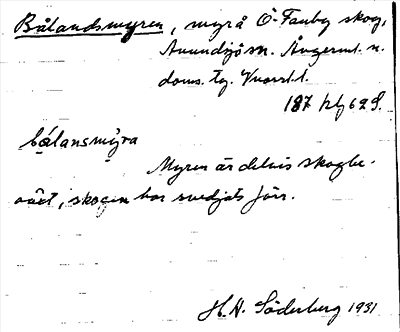 Bålandsmyren, myrå Ö-Fanby skog,
Anundsjö sn. Ångerml. n.
doms. tg. Vnorrl. l.
187 hlg 62 S.
bálansmy̍ra
Myren är delvis skogbe-
växt, skogen har svedjats förr.
H. A. Söderberg 1931